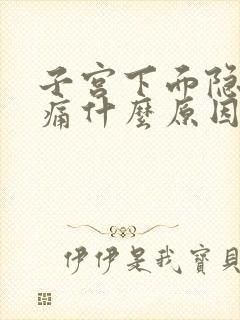 子宫下而隐
痛什麼原因
伊伊是我寶貝